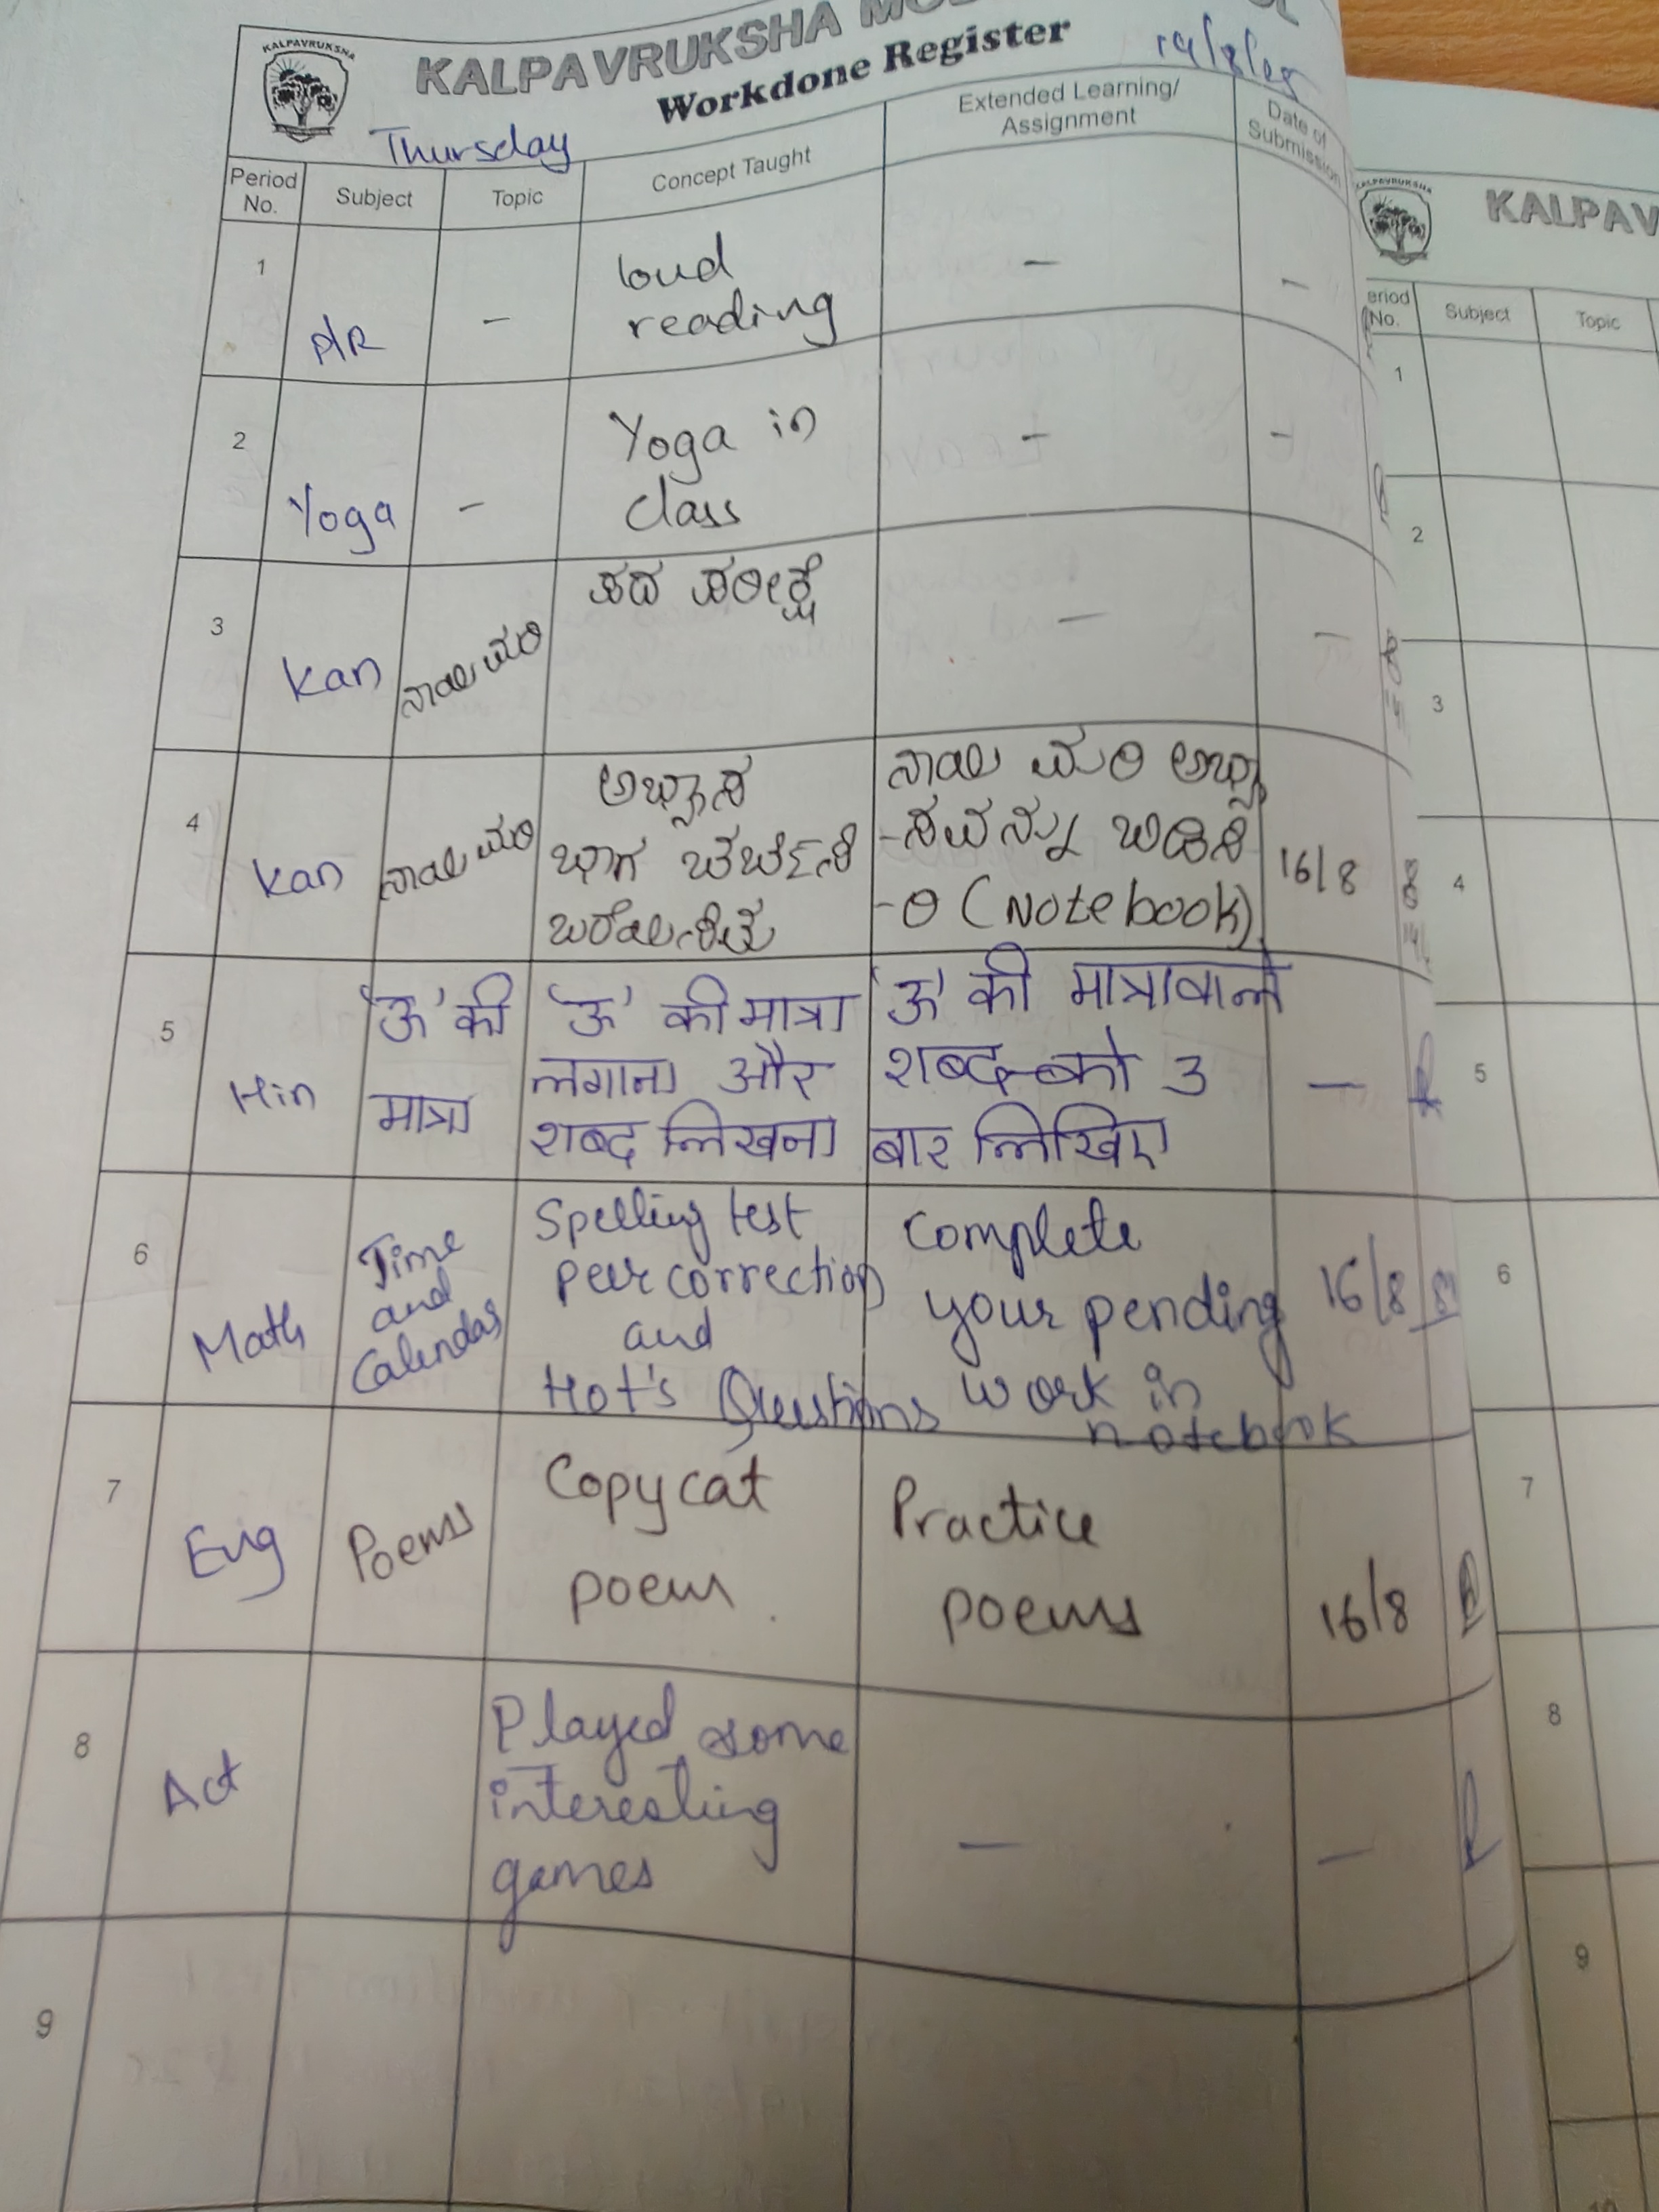 KALPAVRUKSHA
KALPAVRUKSHA
Workdone Register
Thursday
Period No.
Subject
Topic
Concept Taught
Extended Learning/
Assignment
Date of
Submission
1
-
loud
reading
-
-
2
Yoga
-
Yoga in
class
-
-
3
Kan
ನಾಯಿ ಮರಿ
ಪದ ಪರೀಕ್ಷೆ
-
-
4
Kan
ನಾಯಿ ಮರಿ
ಅಭ್ಯಾಸ
ಭಾಗ ಚರ್ಚಿಸಿ
ಬರೆಯಲಾಯಿತು
ನಾಯಿ ಮರಿ ಅಭ್ಯಾ
-ಸವನ್ನು ಬಿಡಿಸಿ
-ರಿ (Notebook)
16/8
5
Hin
'ऊ' की
मात्रा
'ऊ' की मात्रा
लगाना और
शब्द लिखना
'ऊ' की मात्रावाले
शब्द को 3
बार लिखिए
-
6
Math
Time
and
Calendar
Spelling test
peer correction
and
Hot's Questions
Complete
your pending
work in
notebook
16/8
7
Eng
Poems
Copy cat
poem
Practice
poems
16/8
8
Act
Played some
interesting
games
-
-
9
KALPAVRUKSHA
KALPAV
eriod
No.
Subject
Topic
1
2
3
4
5
6
7
8
9